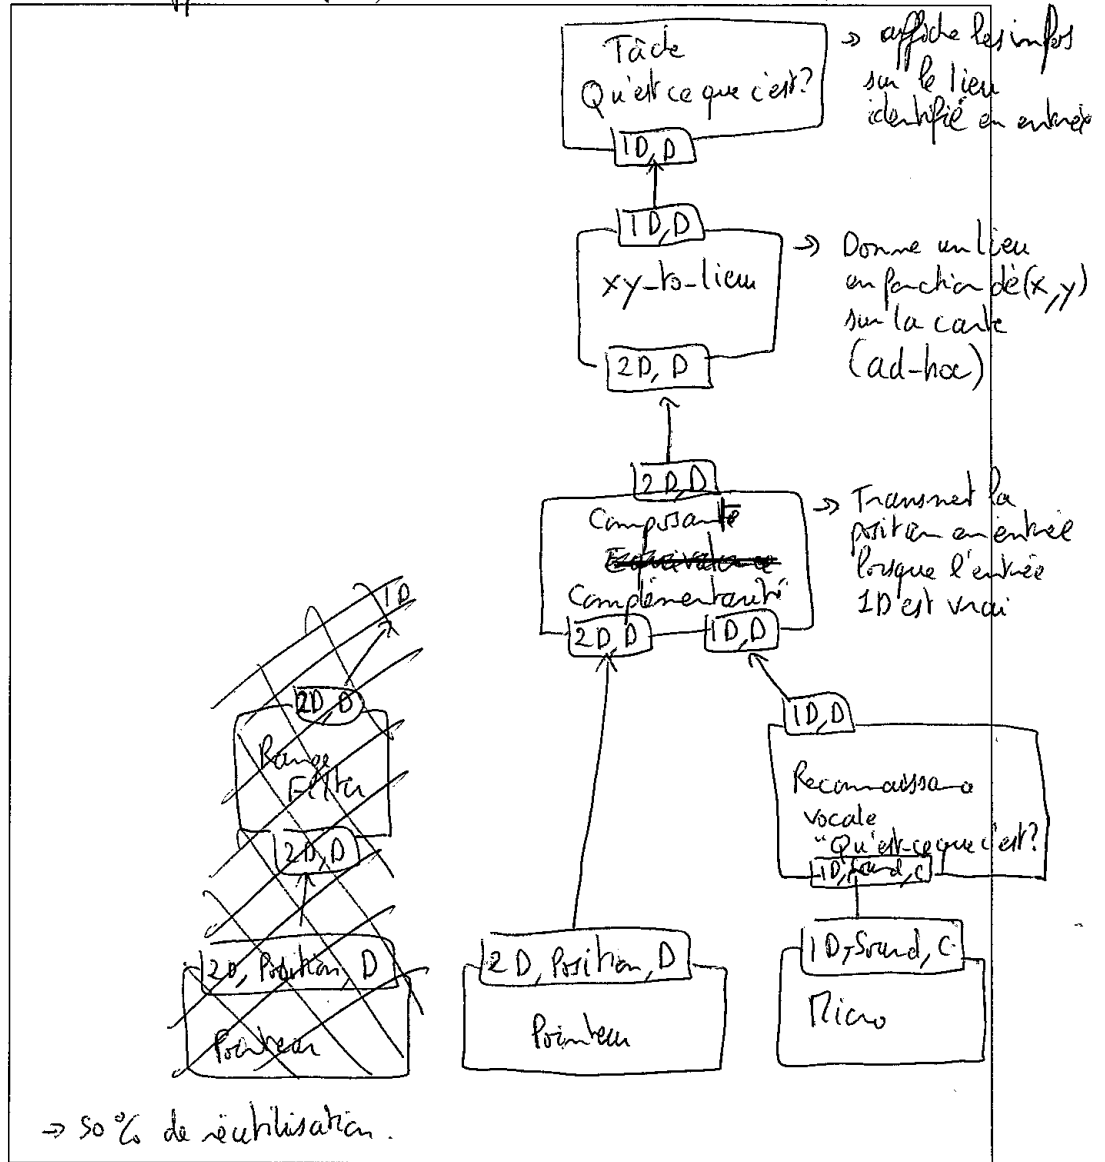 Tâche
Qu'est ce que c'est?
1D, D
⇒ affiche les infos
sur le lieu
identifié en entrée
1D, D
xy-to-lieu
2D, D
⇒ Donne un lieu
en fonction de (x,y)
sur la carte
(ad-hoc)
2D, D
Composante
Equivalence
Complémentarité
2D, D
1D, D
⇒ Transmet la
position en entrée
lorsque l'entrée
1D est vrai
1D
2D, D
Range
Filter
2D, D
2D, Position, D
Pointeur
2D, Position, D
Pointeur
1D, D
Reconnaissance
vocale
"Qu'est-ce que c'est?
1D, Sound, C
1D, Sound, C
Micro
⇒ 50% de réutilisation.